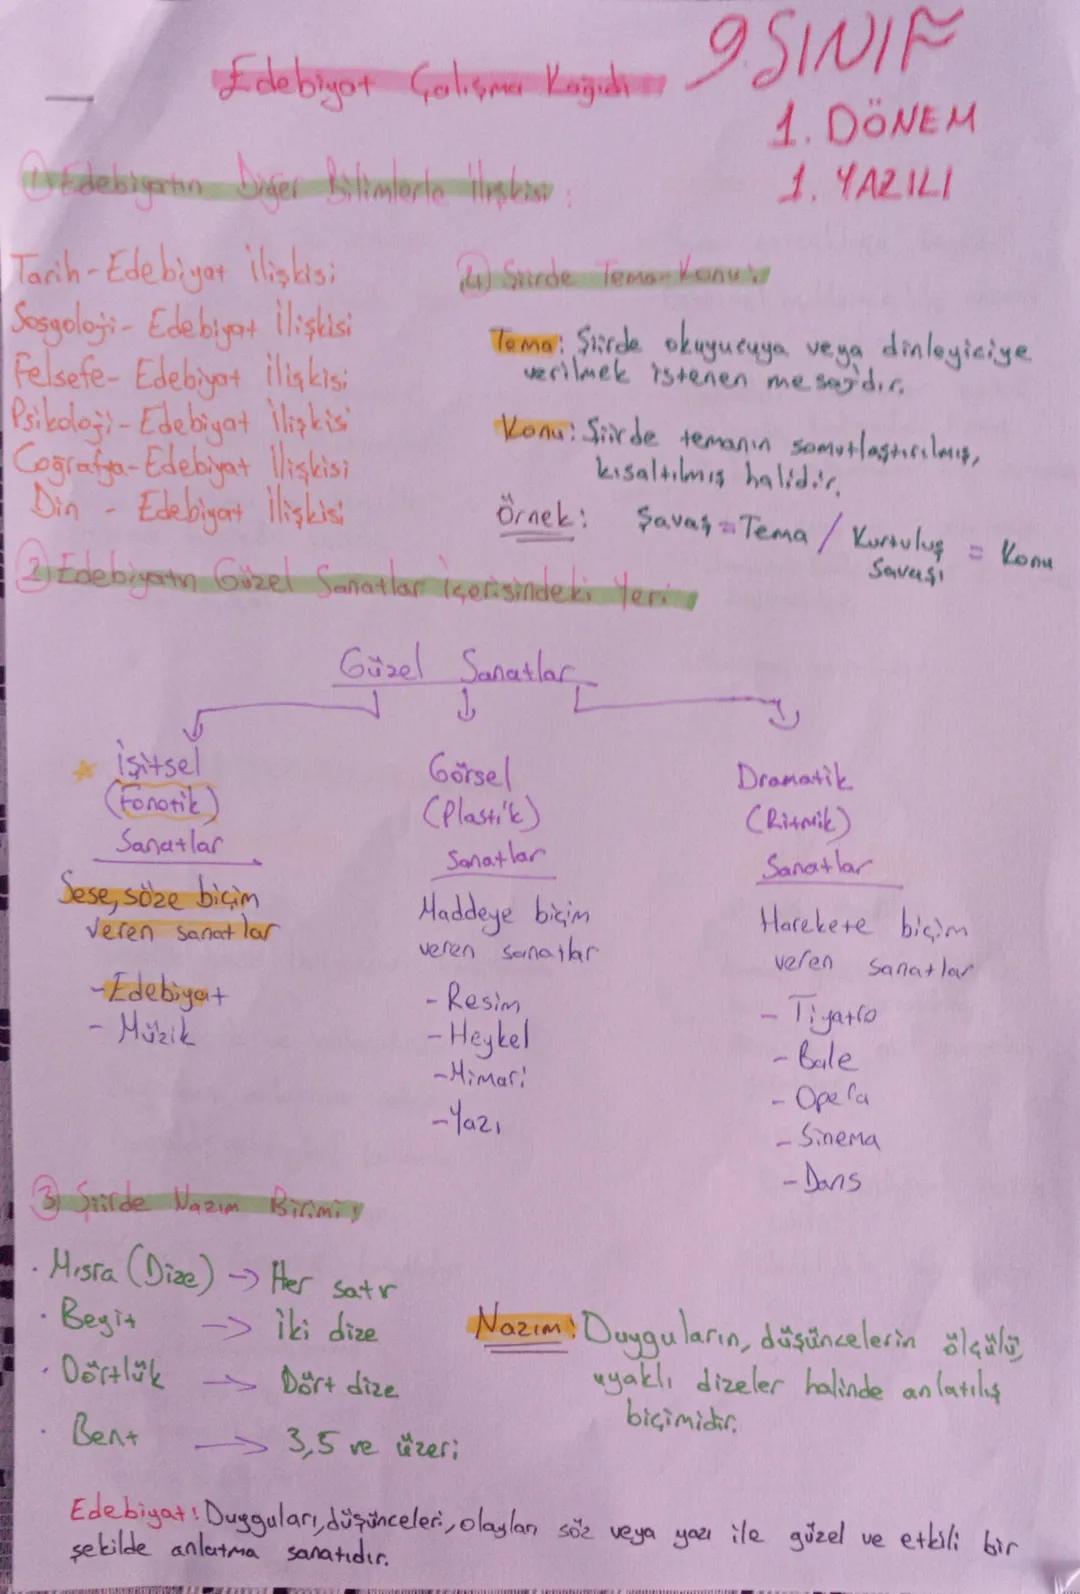 9.SINIF
Edebiyat Çalışma Kağıdı
1. DÖNEM
1. YAZILI
1) Edebiyatın Diğer Bilimlerle İlişkisi:
Tarih-Edebiyat İlişkisi
Sosyoloji- Edebiyat İlişkisi
Felsefe- Edebiyat İlişkisi
Psikoloji- Edebiyat İlişkisi
Coğrafya-Edebiyat İlişkisi
Din - Edebiyat İlişkisi
4) Şiirde Tema-Konu:
Tema: Şiirde okuyucuya veya dinleyiciye
verilmek istenen mesajdır.
Konu: Şiirde temanın somutlaştırılmış,
kısaltılmış halidir.
Örnek: Savaş=Tema / Kurtuluş = Konu
Savaşı
2) Edebiyatın Güzel Sanatlar İçerisindeki Yeri
Güzel Sanatlar
İşitsel
(Fonotik)
Sanatlar
Sese, söze biçim
veren sanatlar
-Edebiyat
- Müzik
Görsel
(Plastik)
Sanatlar
Maddeye biçim
veren sanatlar
- Resim
- Heykel
-Mimari
-Yazı
Dramatik
(Ritmik)
Sanatlar
Harekete biçim
veren sanatlar
- Tiyatro
- Bale
- Opera
- Sinema
- Dans
3) Şiirde Nazım Birimi:
· Mısra (Dize) -> Her satır
· Beyit -> İki dize
· Dörtlük -> Dört dize
· Bent -> 3,5 ve üzeri
Nazım: Duyguların, düşüncelerin ölçülü,
uyaklı dizeler halinde anlatılış
biçimidir.
Edebiyat: Duyguları, düşünceleri, olayları söz veya yazı ile güzel ve etkili bir
şekilde anlatma sanatıdır.